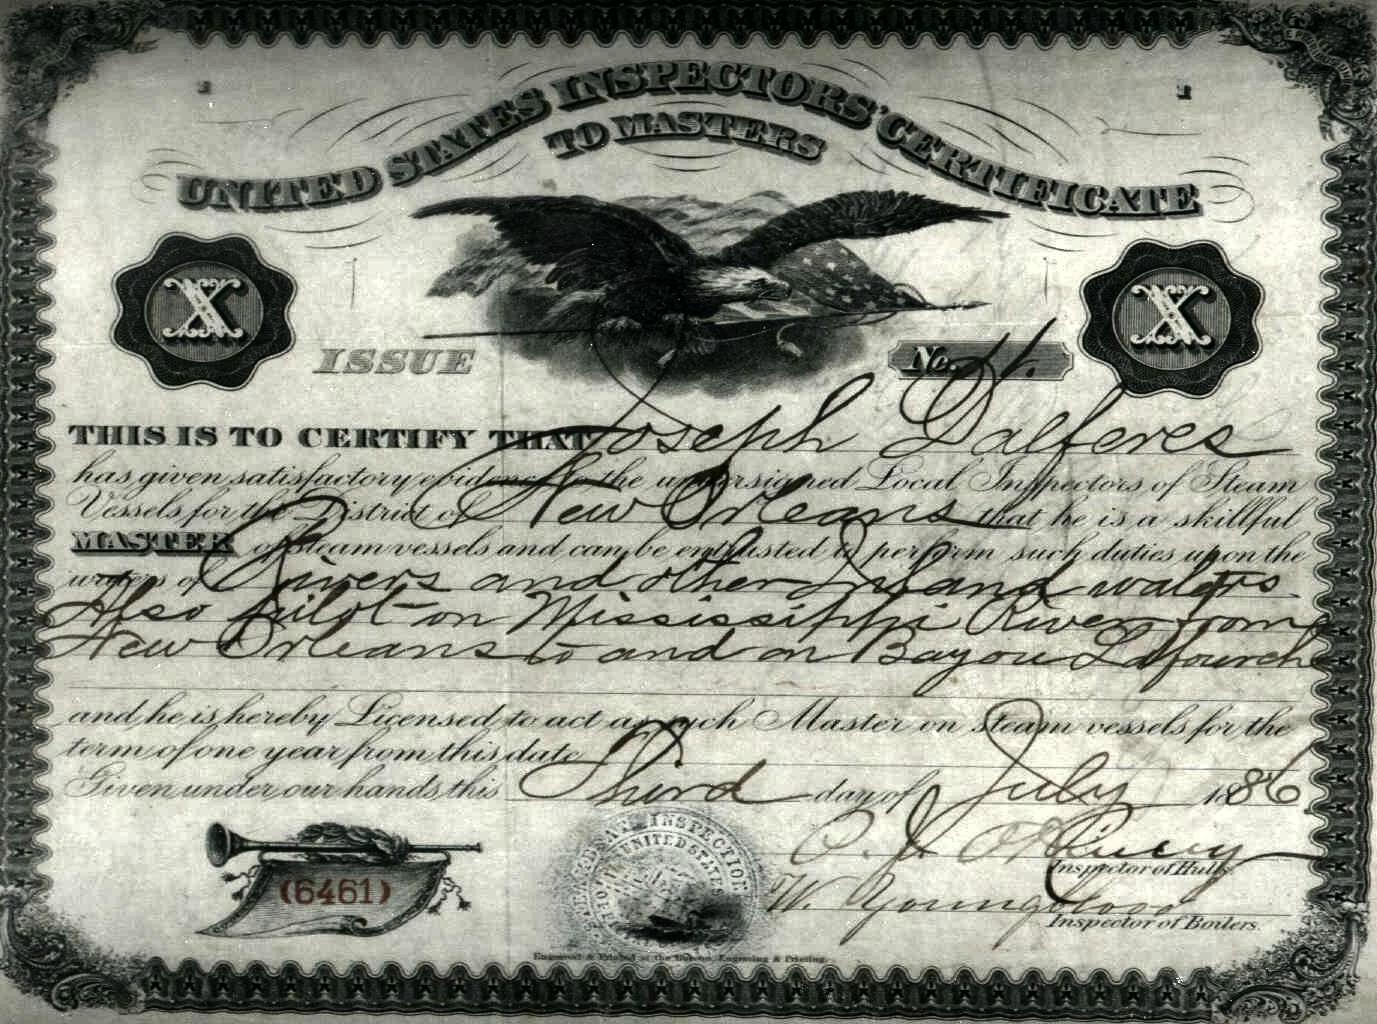 UNITED STATES INSPECTORS' CERTIFICATE
TO MASTERS
X
X
ISSUE
No.
THIS IS TO CERTIFY THAT Joseph Dalferes
has given satisfactory evidence to the undersigned Local Inspectors of Steam
Vessels for the District of New Orleans that he is a skillful
MASTER of steam vessels and can be entrusted to perform such duties upon the
waters of Rivers and other Inland waters
Also pilot on Mississippi River from
New Orleans to and on Bayou Lafourche
and he is hereby Licensed to act as such Master on steam vessels for the
term of one year from this date
Given under our hands this Third day of July 1886
Inspector of Hulls.
(6461)
W. Young
Inspector of Boilers.
STEAMBOAT INSPECTION
UNITED STATES
Engraved & Printed at the Bureau, Engraving & Printing.